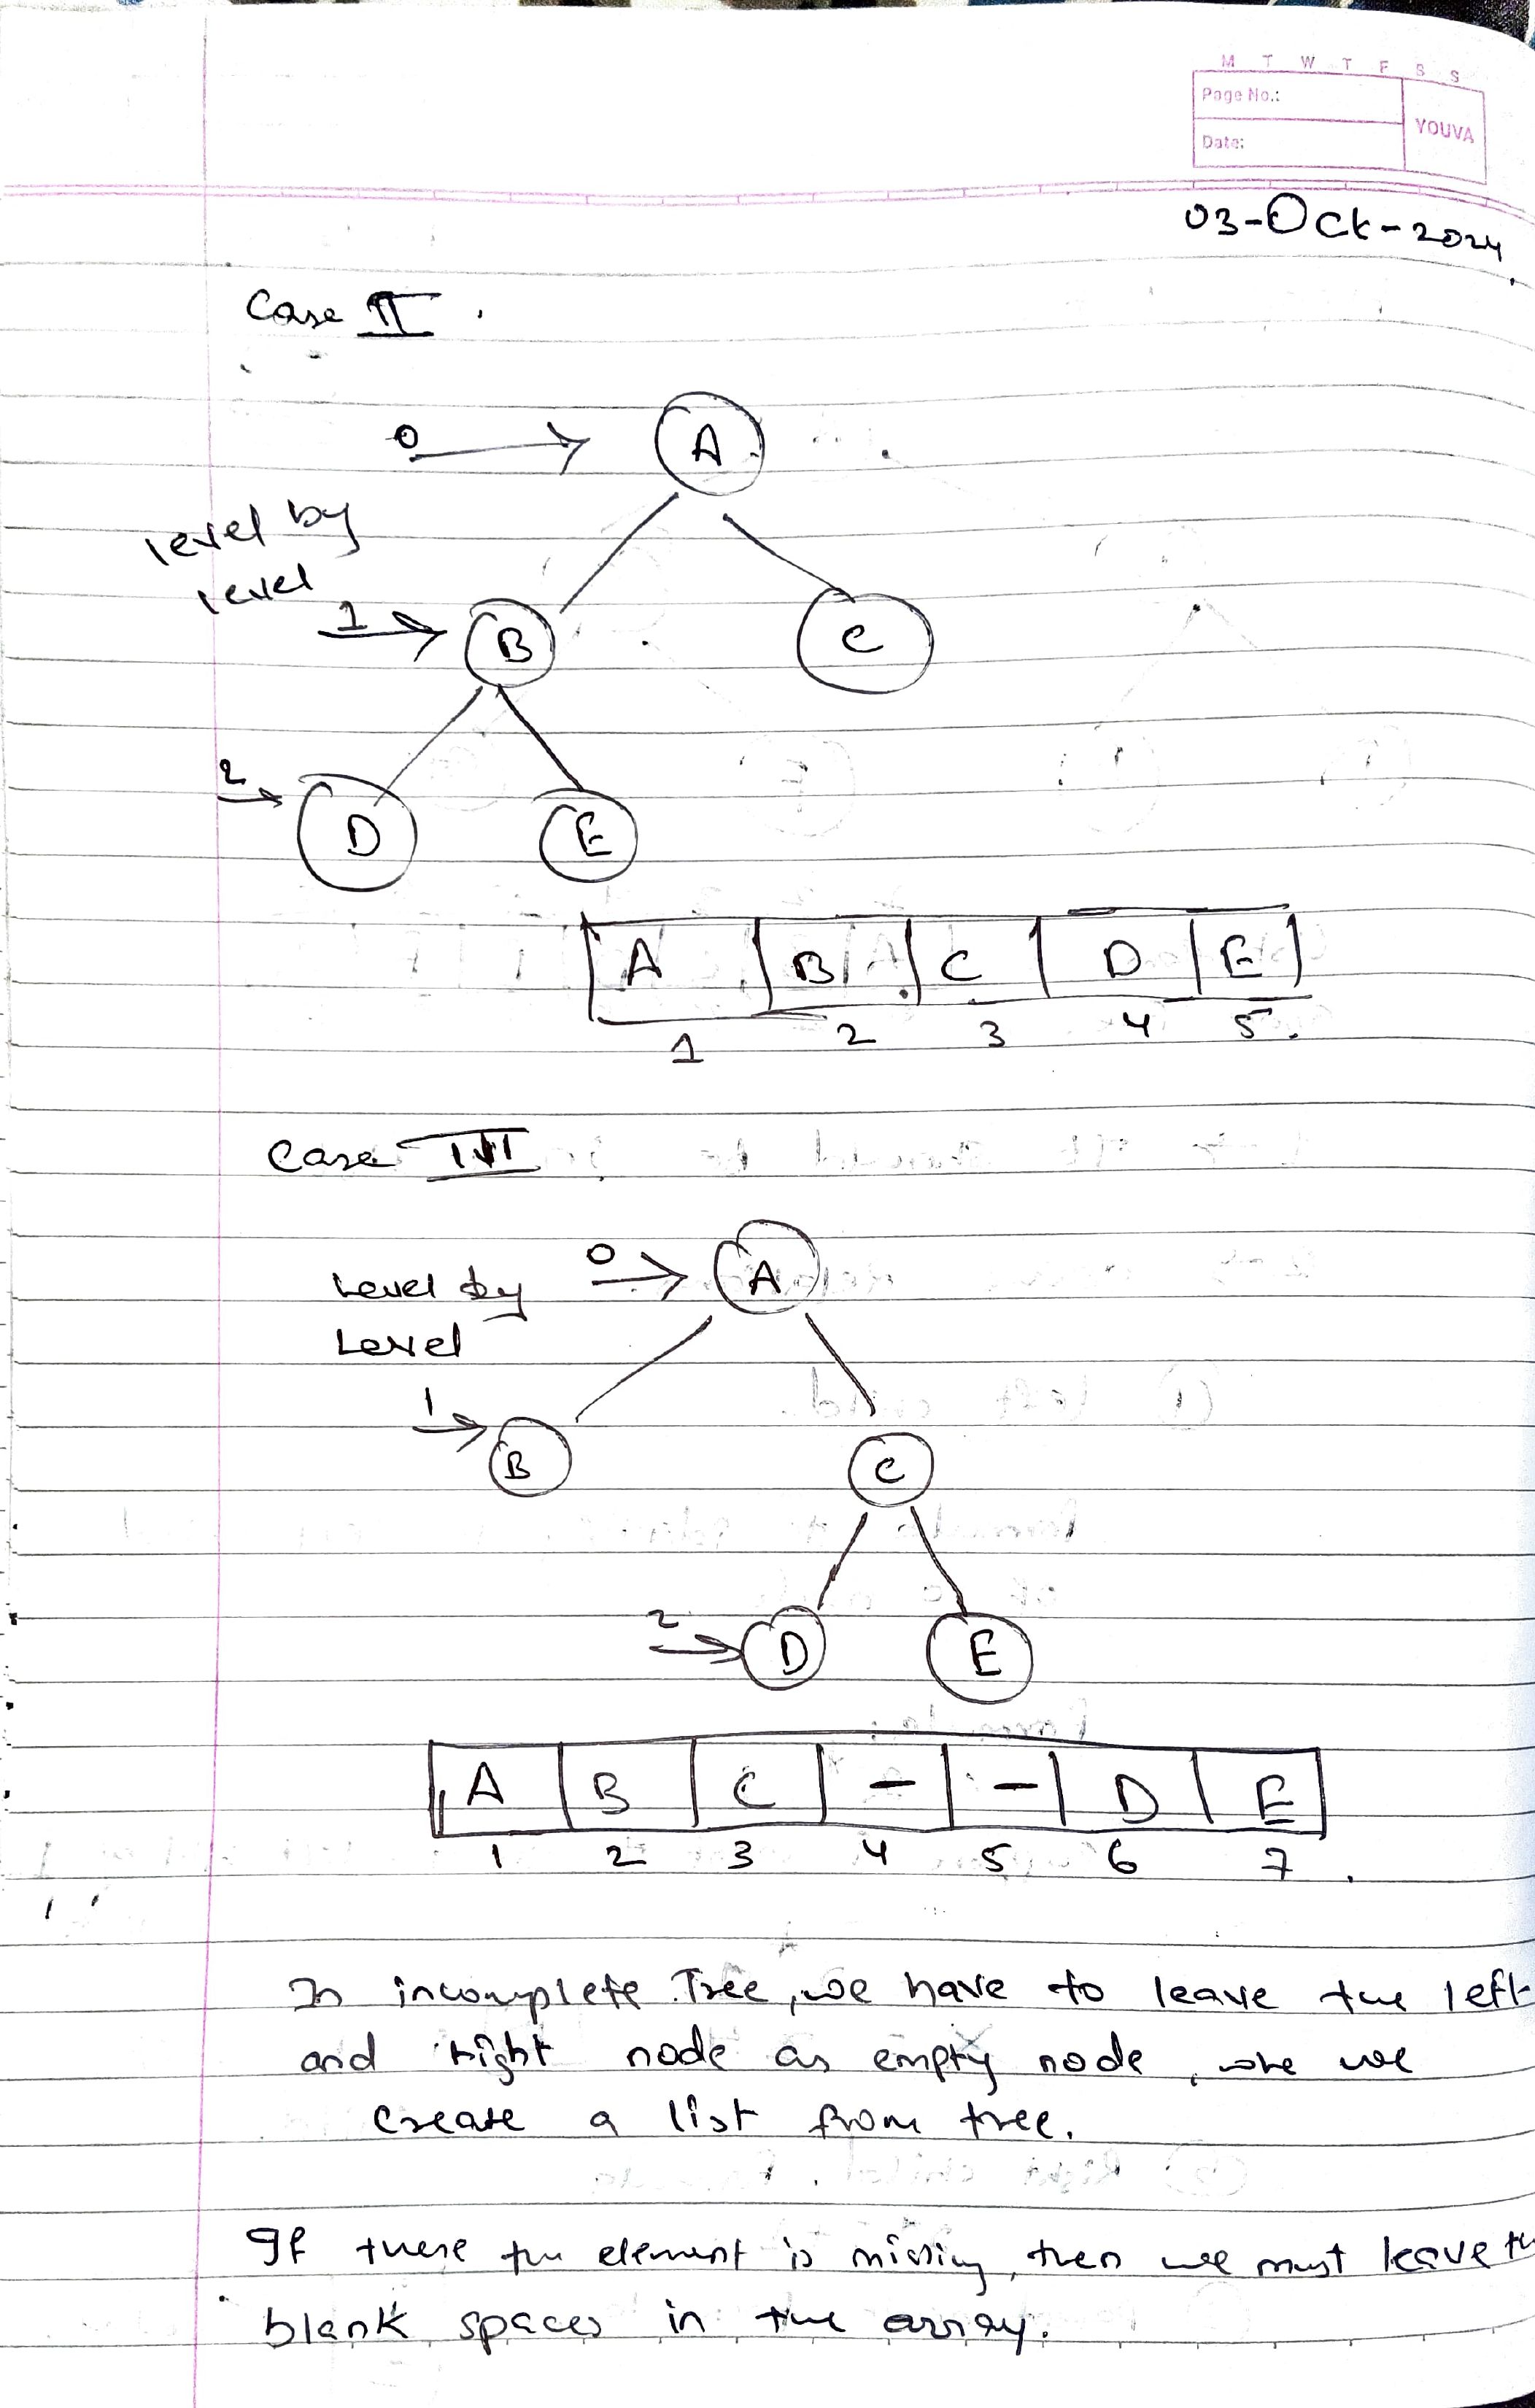 M T W T F S S
Page No.:
YOUVA
Date:
03-Oct-2024
Case II.
0
A
level by
level
1
B
C
2
D
E
A B C D E
1 2 3 4 5.
Case III
0
A
Level by
Level
1
B
C
2
D
E
A B C - - D E
1 2 3 4 5 6 7
In incomplete Tree, we have to leave the left
and right node as empty node, we
create a list from tree.
If there the element is missing, then we must leave
blank spaces in the array.